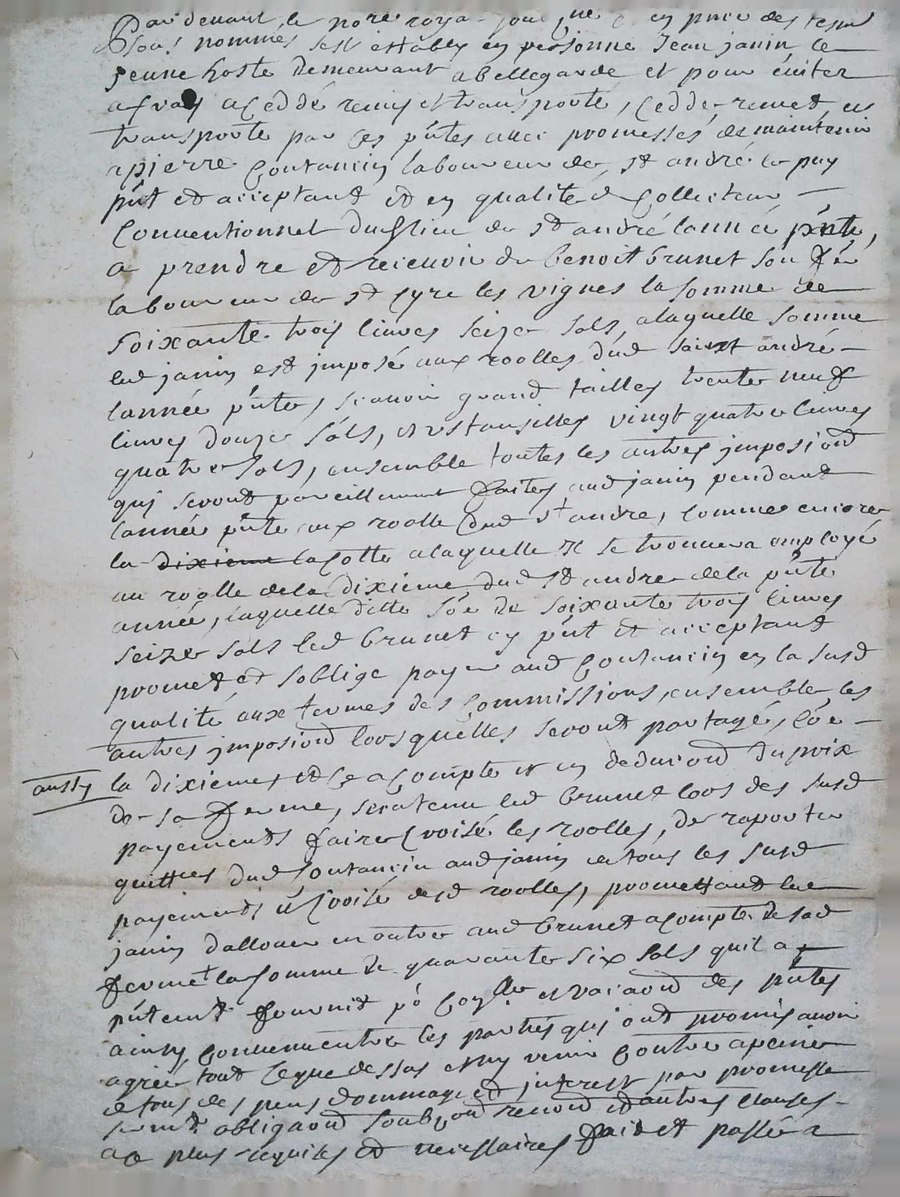 Par devant le no.re royal
sous nommes s'est estably en personne Jean janin le
jeune hoste demeurant a bellegarde et pour éviter
a fraix a ceddé remis et transporté, cedde remet et
transporte par ces p̃ntes avec promesses de maintenir
a pierre Coutancin laboureur de st andré le puy
p̃nt et acceptant et en qualité de Collecteur
Conventionnel dud lieu de st andré lannée p̃nte,
a prendre et recevoir de benoit brunet son fer
laboureur de st Cyre les vignes la somme de
soixante trois livres seize sols, alaquelle somme
led janin est imposé aux roolles dud saint andré
lannée p̃nte, scavoir grand tailles trente neuf
livres douze sols, et ustansilles vingt quatre livres
quatre sols, ensemble toutes les autres imposiōns
qui seront pareillement faites aud janin pendant
lannée p̃nte aux roolle dud st andre, comme encore
la dixieme la cotte alaquelle il se trouvera employé
au roolle dela dixième dud st andre dela p̃nte
année, laquelle ditte sōe de soixante trois livres
seize sols led brunet cy p̃nt et acceptant
promet et soblige payer aud Coutancin en la susd
qualité aux termes des commissions, ensemble les
autres imposiōns lorsquelles seront partagé,
aussy
la dixieme, et ce a compte et en deduciōn du prix
de sa ferme, sera tenu led brunet lors des susd
payements faire croisé les roolles, de raporter
quittes dud Coutancin aud janin de tous les susd
payements et croisé desd roolles, promettant led
janin dallouer en outre aud brunet a compte de sad
ferme la somme de quarante six sols quil a
p̃ntemt fournit pō et vacaōn des p̃ntes
ainsy convenu entre les parties qui ont promis avoir
agreé tout ceque dessus et ny venir contre a peine
de tous despens dommages et interest par promesse
sermt. obligaōn soub̃ōn renonōn et autres clauses
a ce plus requises et necessaires fait et passé a